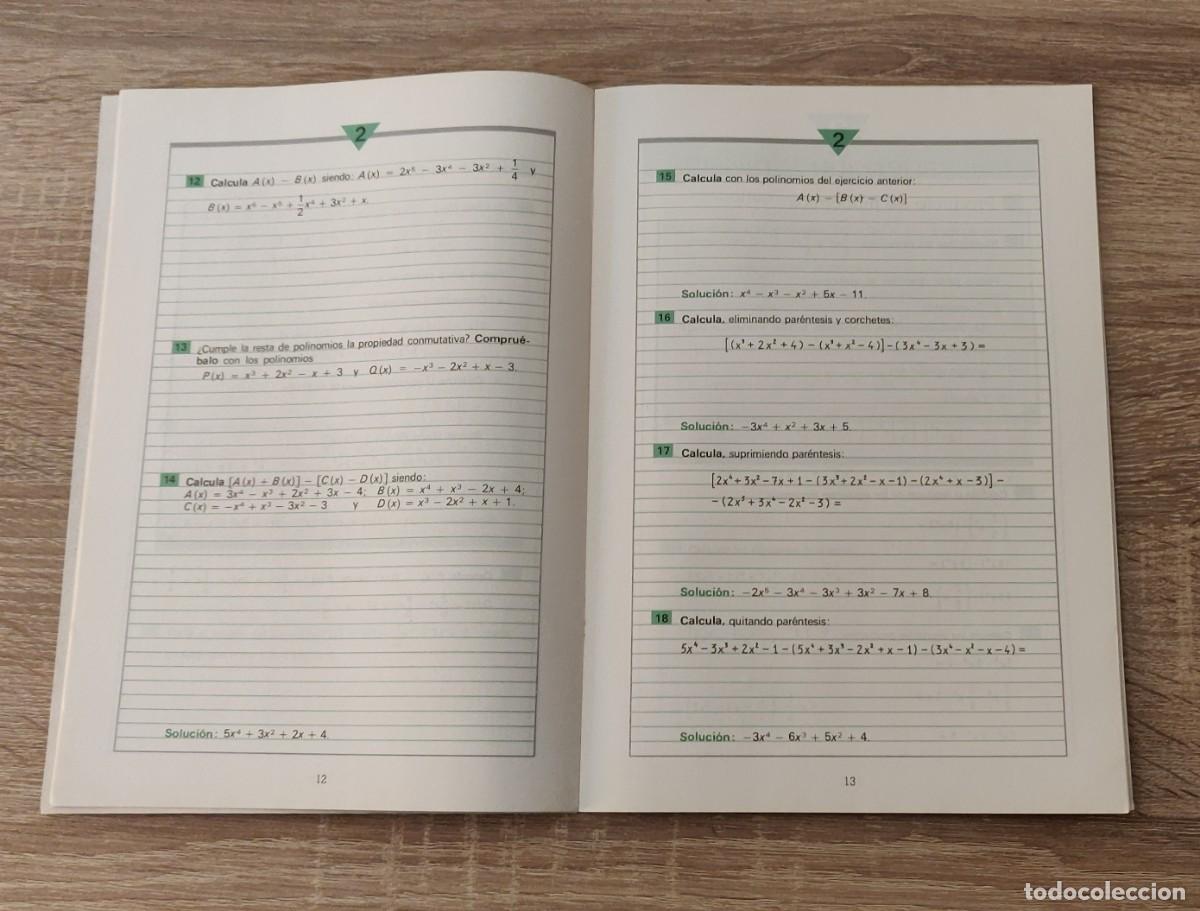 2
12 Calcula A(x) − B(x) siendo: A(x) = 2x⁵ − 3x⁴ − 3x² + 1/4 y
B(x) = x⁶ − x⁵ + 1/2 x⁴ + 3x² + x.
13 ¿Cumple la resta de polinomios la propiedad conmutativa? Comprué-
balo con los polinomios
P(x) = x³ + 2x² − x + 3 y Q(x) = −x³ − 2x² + x − 3.
14 Calcula [A(x) + B(x)] − [C(x) − D(x)] siendo:
A(x) = 3x⁴ − x³ + 2x² + 3x − 4; B(x) = x⁴ + x³ − 2x + 4;
C(x) = −x⁴ + x³ − 3x² − 3 y D(x) = x³ − 2x² + x + 1.
Solución: 5x⁴ + 3x² + 2x + 4.
12
2
15 Calcula con los polinomios del ejercicio anterior:
A(x) − [B(x) − C(x)]
Solución: x⁴ − x³ − x² + 5x − 11.
16 Calcula, eliminando paréntesis y corchetes:
[(x³ + 2x² + 4) − (x³ + x² − 4)] − (3x⁴ − 3x + 3) =
Solución: −3x⁴ + x² + 3x + 5.
17 Calcula, suprimiendo paréntesis:
[2x⁴ + 3x² − 7x + 1 − (3x³ + 2x² − x − 1) − (2x⁴ + x − 3)] −
− (2x⁵ + 3x⁴ − 2x² − 3) =
Solución: −2x⁵ − 3x⁴ − 3x³ + 3x² − 7x + 8.
18 Calcula, quitando paréntesis:
5x⁴ − 3x³ + 2x² − 1 − (5x⁴ + 3x³ − 2x² + x − 1) − (3x⁴ − x² − x − 4) =
Solución: −3x⁴ − 6x³ + 5x² + 4.
13
todocoleccion